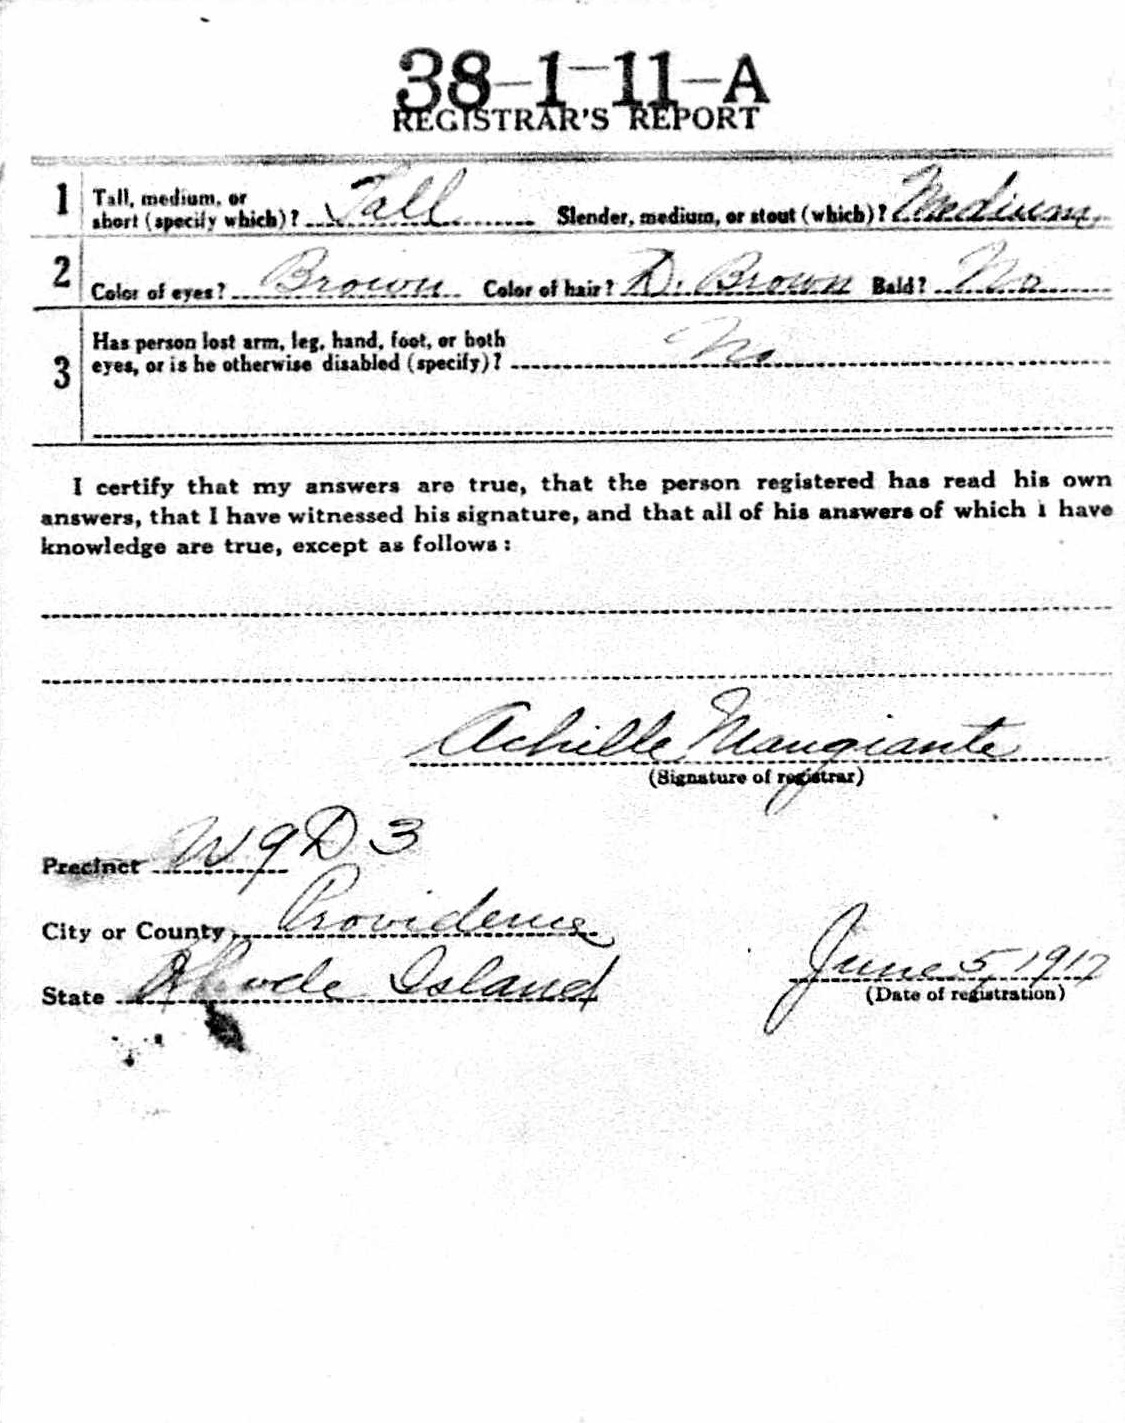 38-1-11-A
REGISTRAR'S REPORT
1 Tall, medium, or
short (specify which)? Tall Slender, medium, or stout (which)? Medium
2 Color of eyes? Brown Color of hair? D. Brown Bald? No
3 Has person lost arm, leg, hand, foot, or both
eyes, or is he otherwise disabled (specify)? No
I certify that my answers are true, that the person registered has read his own
answers, that I have witnessed his signature, and that all of his answers of which I have
knowledge are true, except as follows:
Achille Mangiante
(Signature of registrar)
Precinct W 9 D 3
City or County Providence
State Rhode Island
June 5, 1917
(Date of registration)